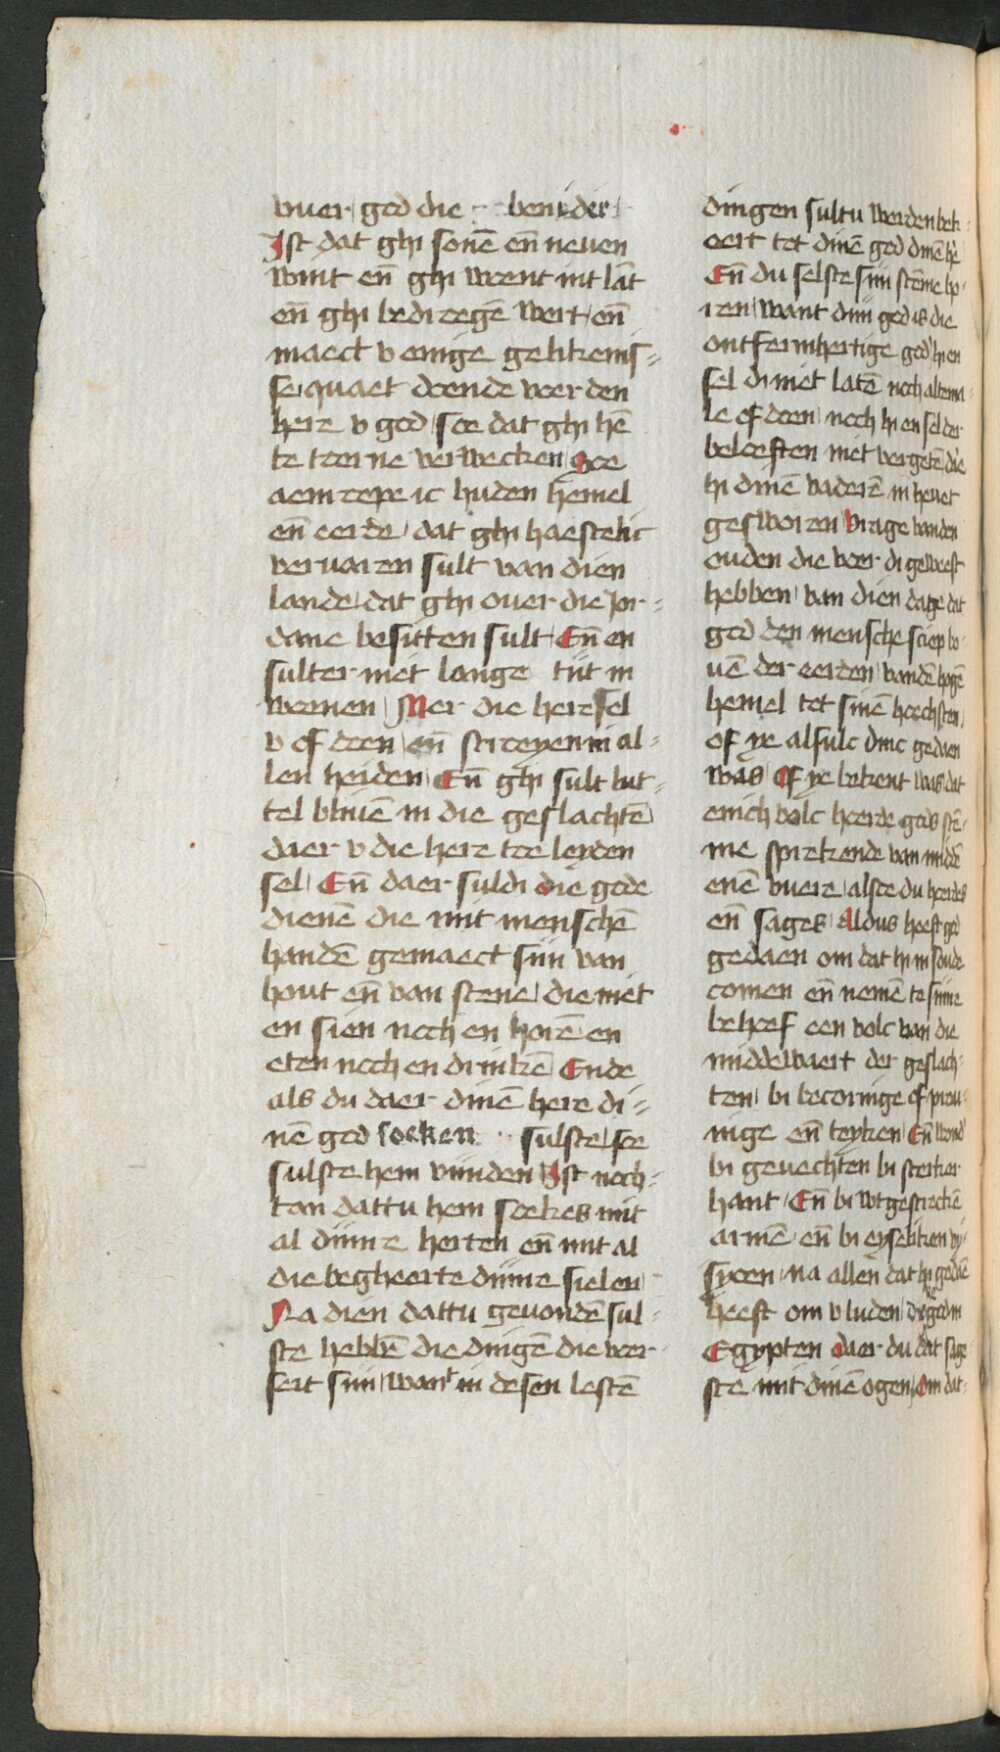 vuer god die benider
Ist dat ghi sonē en̄ neuen
wint en̄ ghi woent int lāt
en̄ ghi bedroegē wert en̄
maect v enige gelikenis=
se quaet doende voer den
here v god soe dat ghi hē
te toerne verwecken Soe
aenroepe ic huden hemel
en̄ eerde dat ghi haestelic
veruaren sult van dien
lande dat ghi ouer die Jor=
dane besitten sult En̄ en
sulter niet lange tijt in
wonen Mer die here sel
v of doen en̄ stroeyen in al=
len heiden En̄ ghi sult lut=
tel bliuē in die geslachtē
daer v die here toe leyden
sel En̄ daer suldi die gode
dienē die mit menschē
handē gemaect sijn van
hout en̄ van stene die niet
en sien noch en horē en
eten noch en drinkē Ende
als du daer dinē here di=
nē god soeken sulste soe
sulste hem vinden Ist noch=
tan dattu hem soekes mit
al dijnre herten en̄ mit al
die begheerte dijnre sielen
Na dien dattu geuondē sul=
ste hebbē die dingē die voer
seit sijn want in desen lestē
dingen sultu werden bek=
eert tot dinē god dinē hē
En̄ du selste sijn stēme ho=
ren want dijn god is die
ontfermhertige god hi en
sel di niet latē noch altema=
le of doen noch hi en sel der
beloeften niet vergetē die
hi dinē vaderē in heuet
gesworen Vrage vanden
ouden die voer di geweest
hebben van dien dage dat
god den mensche sciep bo=
uē der eerden vandē hogē
hemel tot sinē hoechsten
of ye alsulc dinc gedaen
was Of ye bekent was dat
enich volc hoerde gods stē=
me sprekende van middē
enē vuere alsoe du hoerdes
en̄ sages Aldus heeft god
gedaen om dat hi in soude
comen en̄ nemē te sijnre
behoef een volc van die
middewaert der geslach=
ten bi becoringe of prou=
inge en̄ teyken En̄ wond'
bi geuechten bi sterker
hant En̄ bi wtgestrectē
armē en̄ bi eyseliken vi=
syoen na allen dat hi gedaē
heeft om v luden v god in
Egypten daer du dat sage
ste mit dinē ogen Om dat=